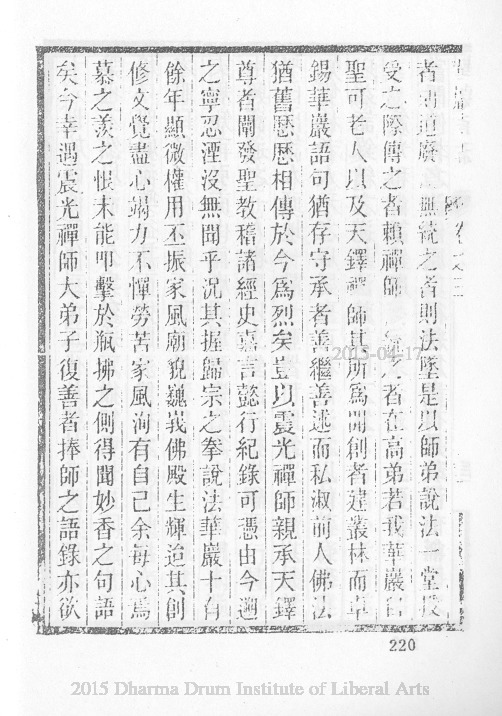 者則道廢無統之者則法墜是以師弟說法一堂授
受之際傳之者賴禪師統之者在高弟若我華嚴官
聖可老人以及天鐸禪師其所爲開創者建叢林而卓
錫華嚴語句猶存守承者善繼善述而私淑前人佛法
猶舊歷歷相傳於今爲烈矣豈以震光禪師親承天鐸
尊者闡發聖教稽諸經史嘉言懿行紀錄可憑由今遡
之寧忍湮沒無聞乎況其握歸宗之拳說法華嚴十有
餘年顯微權用丕振家風廟貌巍峩佛殿生輝追其創
修文覺盡心竭力不憚勞苦家風洵有自己余每心焉
慕之羨之恨未能叩擊於瓶拂之側得聞妙香之句語
矣今幸遇震光禪師大弟子復善者捧師之語錄亦欲
220
2015-04-17
2015 Dharma Drum Institute of Liberal Arts